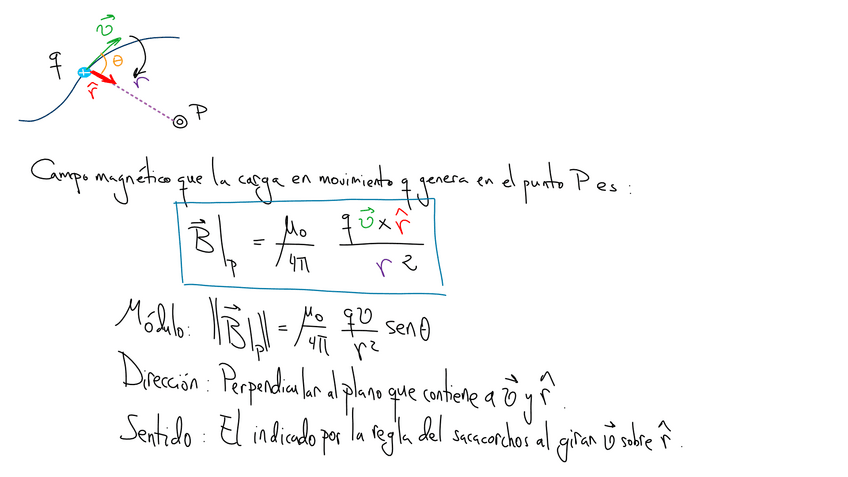 v⃗
q
θ
r
r̂
P
Campo magnético que la carga en movimiento q genera en el punto P es:
B⃗|p = μ₀/4π q v⃗ × r̂ / r²
Módulo: ‖B⃗|p‖ = μ₀/4π qv/r² senθ
Dirección: Perpendicular al plano que contiene a v⃗ y r̂.
Sentido: El indicado por la regla del sacacorchos al giran v⃗ sobre r̂.